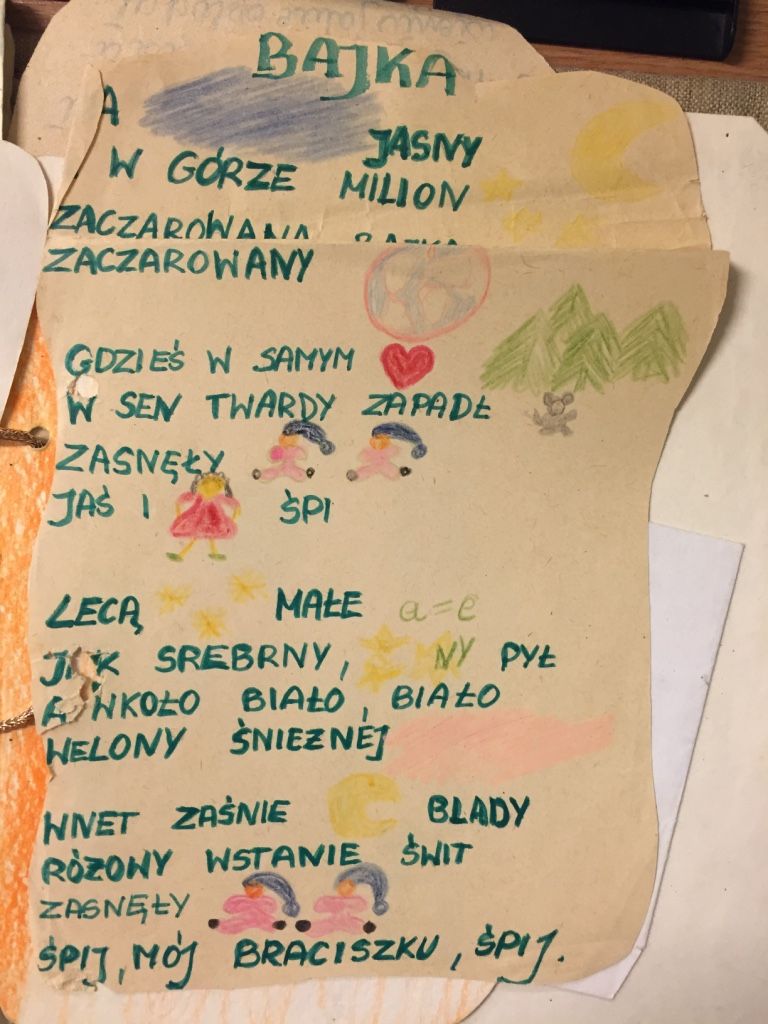 BAJKA
A
JASNY
W GÓRZE MILION
ZACZAROWANA BAJKA
ZACZAROWANY
GDZIEŚ W SAMYM
W SEN TWARDY ZAPADŁ
ZASNĘŁY
JAŚ I ŚPI
LECĄ MAŁE a=e
JAK SREBRNY, NY PYŁ
A WKOŁO BIAŁO, BIAŁO
WELONY ŚNIEZNÉJ
WNET ZAŚNIE BLADY
RÓZOWY WSTANIE ŚWIT
ZASNĘŁY
ŚPIJ, MÓJ BRACISZKU, ŚPIJ.